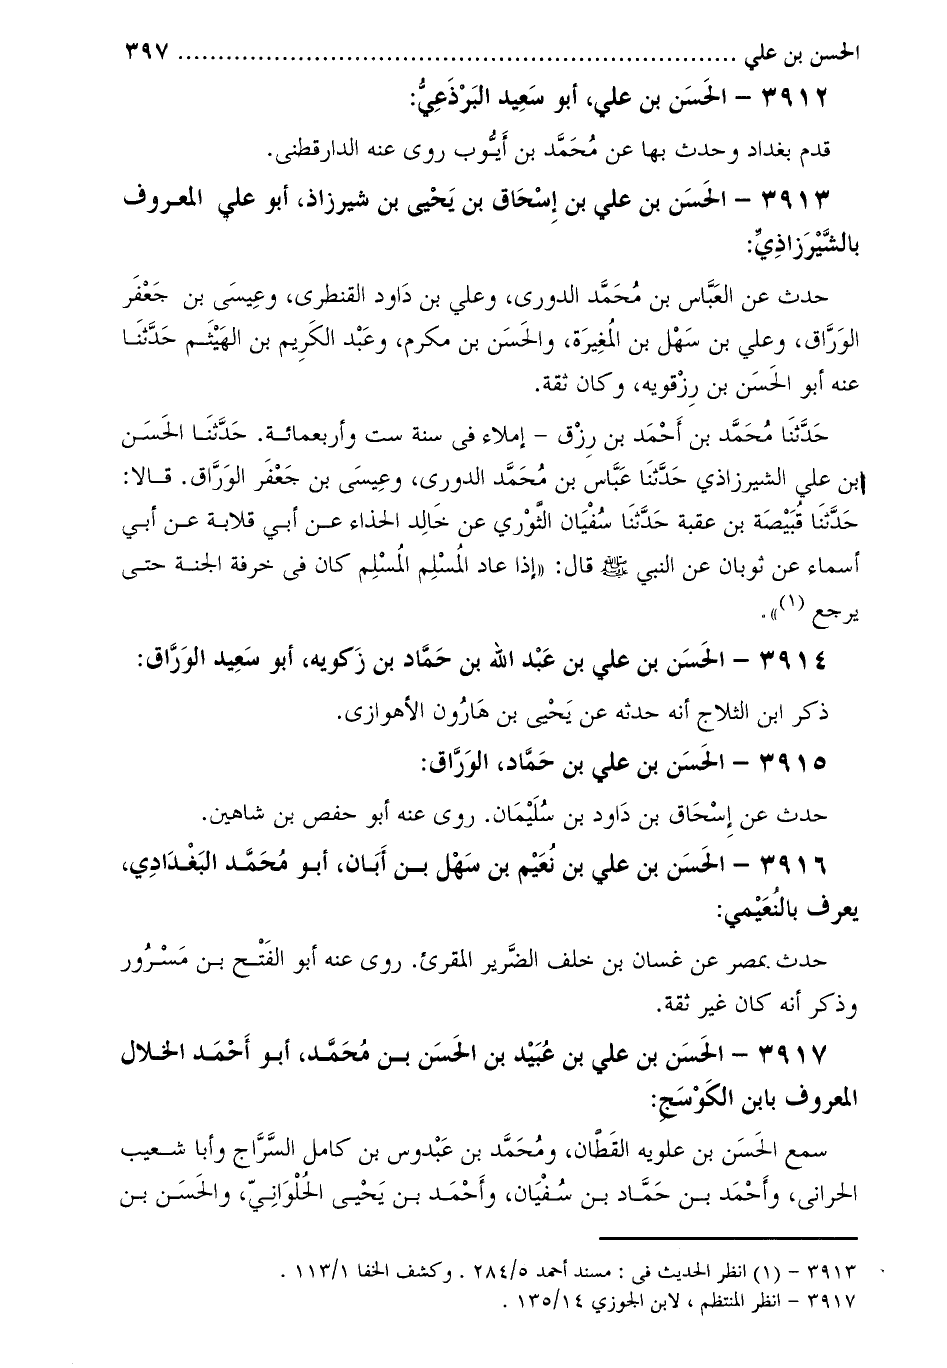 الحسن بن علي ........................................................................ ٣٩٧
٣٩١٢ – الحَسَن بن علي، أبو سَعِيد البَرْذَعِيُّ:
قدم بغداد وحدث بها عن مُحَمَّد بن أَيُّوب روى عنه الدارقطنى.
٣٩١٣ – الحَسَن بن علي بن إِسْحَاق بن يَحْيى بن شيرزاذ، أبو علي المعروف
بالشَّيْرَزاذِيِّ:
حدث عن العَبَّاس بن مُحَمَّد الدورى، وعلي بن دَاود القنطرى، وعِيسَى بن جَعْفَر
الوَرَّاق، وعلي بن سَهْل بن المُغِيرَة، والحَسَن بن مكرم، وعَبْد الكَرِيم بن الهَيْثَم حَدَّثَنَا
عنه أبو الحَسَن بن رِزْقويه، وكان ثقة.
حَدَّثَنَا مُحَمَّد بن أَحْمَد بن رِزق – إملاء فى سنة ست وأربعمائة. حَدَّثَنَا الحَسَن
ابن علي الشيرزاذي حَدَّثَنَا عَبَّاس بن مُحَمَّد الدورى، وعِيسَى بن جَعْفَر الوَرَّاق. قالا:
حَدَّثَنَا قُبَيْصَة بن عقبة حَدَّثَنَا سُفْيَان الثَّوْري عن خَالِد الحذاء عن أبي قلابة عن أبي
أسماء عن ثوبان عن النبي ﷺ قال: «إذا عاد المُسْلِم المُسْلِم كان فى خرفة الجنة حتى
يرجع (١)».
٣٩١٤ – الحَسَن بن علي بن عَبْد الله بن حَمَّاد بن زَكويه، أبو سَعِيد الوَرَّاق:
ذكر ابن الثلاج أنه حدثه عن يَحْيى بن هَارُون الأهوازى.
٣٩١٥ – الحَسَن بن علي بن حَمَّاد، الوَرَّاق:
حدث عن إِسْحَاق بن دَاود بن سُلَيْمَان. روى عنه أبو حفص بن شاهين.
٣٩١٦ – الحَسَن بن علي بن نُعَيْم بن سَهْل بن أَبَان، أبو مُحَمَّد البَغْدَادِي،
يعرف بالنُعَيْمي:
حدث بمصر عن غسان بن خلف الضَّرير المقرئ. روى عنه أبو الفَتْح بن مَسْرُور
وذكر أنه كان غير ثقة.
٣٩١٧ – الحَسَن بن علي بن عُبَيْد بن الحَسَن بن مُحَمَّد، أبو أَحْمَد الخلال
المعروف بابن الكَوْسَجِ:
سمع الحَسَن بن علويه القَطَّان، ومُحَمَّد بن عَبْدوس بن كامل السَّرَّاج وأبا شعيب
الحرانى، وأَحْمَد بن حَمَّاد بن سُفْيَان، وأَحْمَد بن يَحْيى الحُلْوَانِيّ، والحَسَن بن
٣٩١٣ – (١) انظر الحديث فى : مسند أحمد ٢٨٤/٥ . وكشف الخفا ١١٣/١ .
٣٩١٧ – انظر المنتظم ، لابن الجوزي ١٣٥/١٤ .